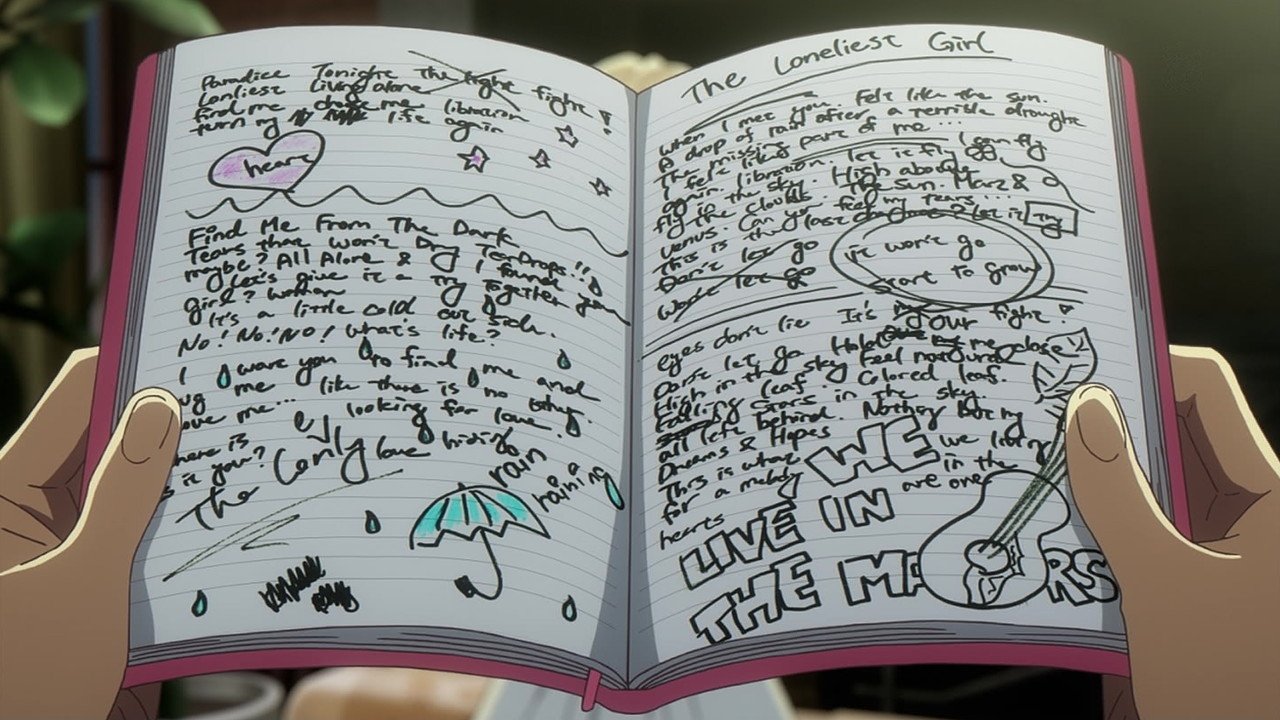 Paradice Tonight the fight fight!
Lonliest Living alone
find me chase me libration
turn my life again
heart
Find Me From The Dark
Tears that Won't Dry TearDrops!!
maybe? All Alone & I found you
girl? woman Let's give it a try Together
It's a little cold out side.
No! No! No! What's life?
I want you to find me and
me like there is no other
me... looking for love.
is it you? love hiding
The Only
rain
raining
The Loneliest Girl
When I met you Felt like the sun.
A drop of rain after a terrible drought
The missing part of me...
I felt like I can fly
again. libration. let it fly
fly in the sky. High above
the clouds. The sun. Marz &
Venus. Can you feel my tears...
This is the last let it Try
Don't let go
let go
it won't go
start to grow
eyes don't lie It's our fight!
Don't let go Hold me close
High in the sky Feel not
leaf. Colored leaf.
Falling Stars in the sky.
all left behind. Nothing But my
Dreams & Hopes
This is what we living
for a melody in the
hearts are one
WE
LIVE IN
THE MARS